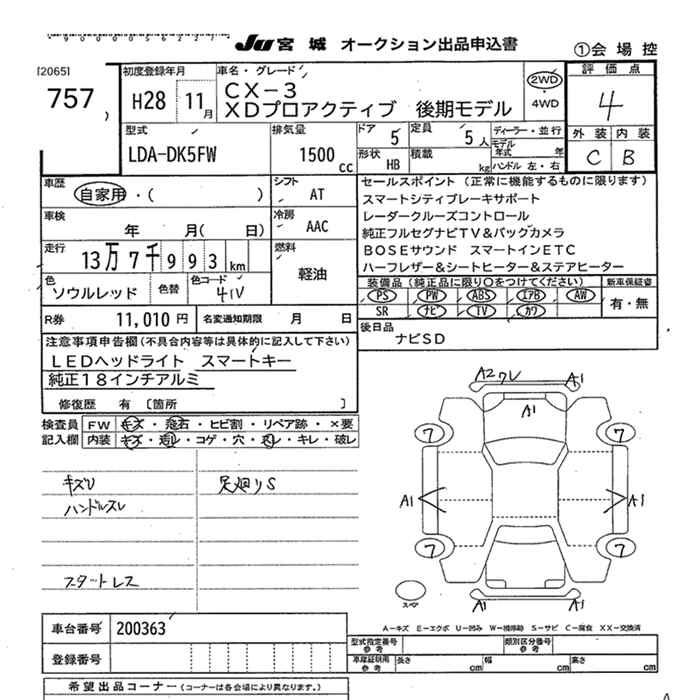 Ju 宮城 オークション出品申込書
①会場控
[2065]
757
初度登録年月
H28 11月
車名・グレード
CX-3
XDプロアクティブ 後期モデル
2WD
・4WD
評価点
4
外装 内装
C B
型式
LDA-DK5FW
排気量
1500cc
ドア 5
定員 5人
ディーラー・並行
モデル年式 年
形状 HB
積載 kg
ハンドル 左・右
車歴
自家用・( )
シフト AT
車検
年 月( 日)
冷房 AAC
走行
13万7千993km
燃料
軽油
色
ソウルレッド
色替
色コード
41V
R券 11,010円
名変通知期限 月 日
セールスポイント (正常に機能するものに限ります)
スマートシティブレーキサポート
レーダークルーズコントロール
純正フルセグナビTV&バックカメラ
BOSEサウンド スマートインETC
ハーフレザー&シートヒーター&ステアヒーター
装備品 (純正品に限り○をつけてください)
新車保証書
PS PW ABS エアB AW
有・無
SR ナビ TV カワ
後日品
ナビSD
注意事項申告欄(不具合内容等は具体的に記入して下さい)
LEDヘッドライト スマートキー
純正18インチアルミ
修復歴 有 [箇所 ]
検査員記入欄
FW キズ・飛石・ヒビ割・リペア跡・×要
内装 キズ・汚レ・コゲ・穴・スレ・キレ・破レ
キズU
ハンドルスレ
スタートレス
足廻りS
A2 ワレ A1
A1
7 7
A1 A1
7 7
スペア
A1 A1
A-キズ E-エクボ U-凹み W-補修跡 S-サビ C-腐食 XX-交換済
車台番号 200363
登録番号
型式指定番号 参考
類別区分番号 参考
車庫証明用 参考
長さ cm 幅 cm 高さ cm
希望出品コーナー(コーナーは各会場により異なります。)